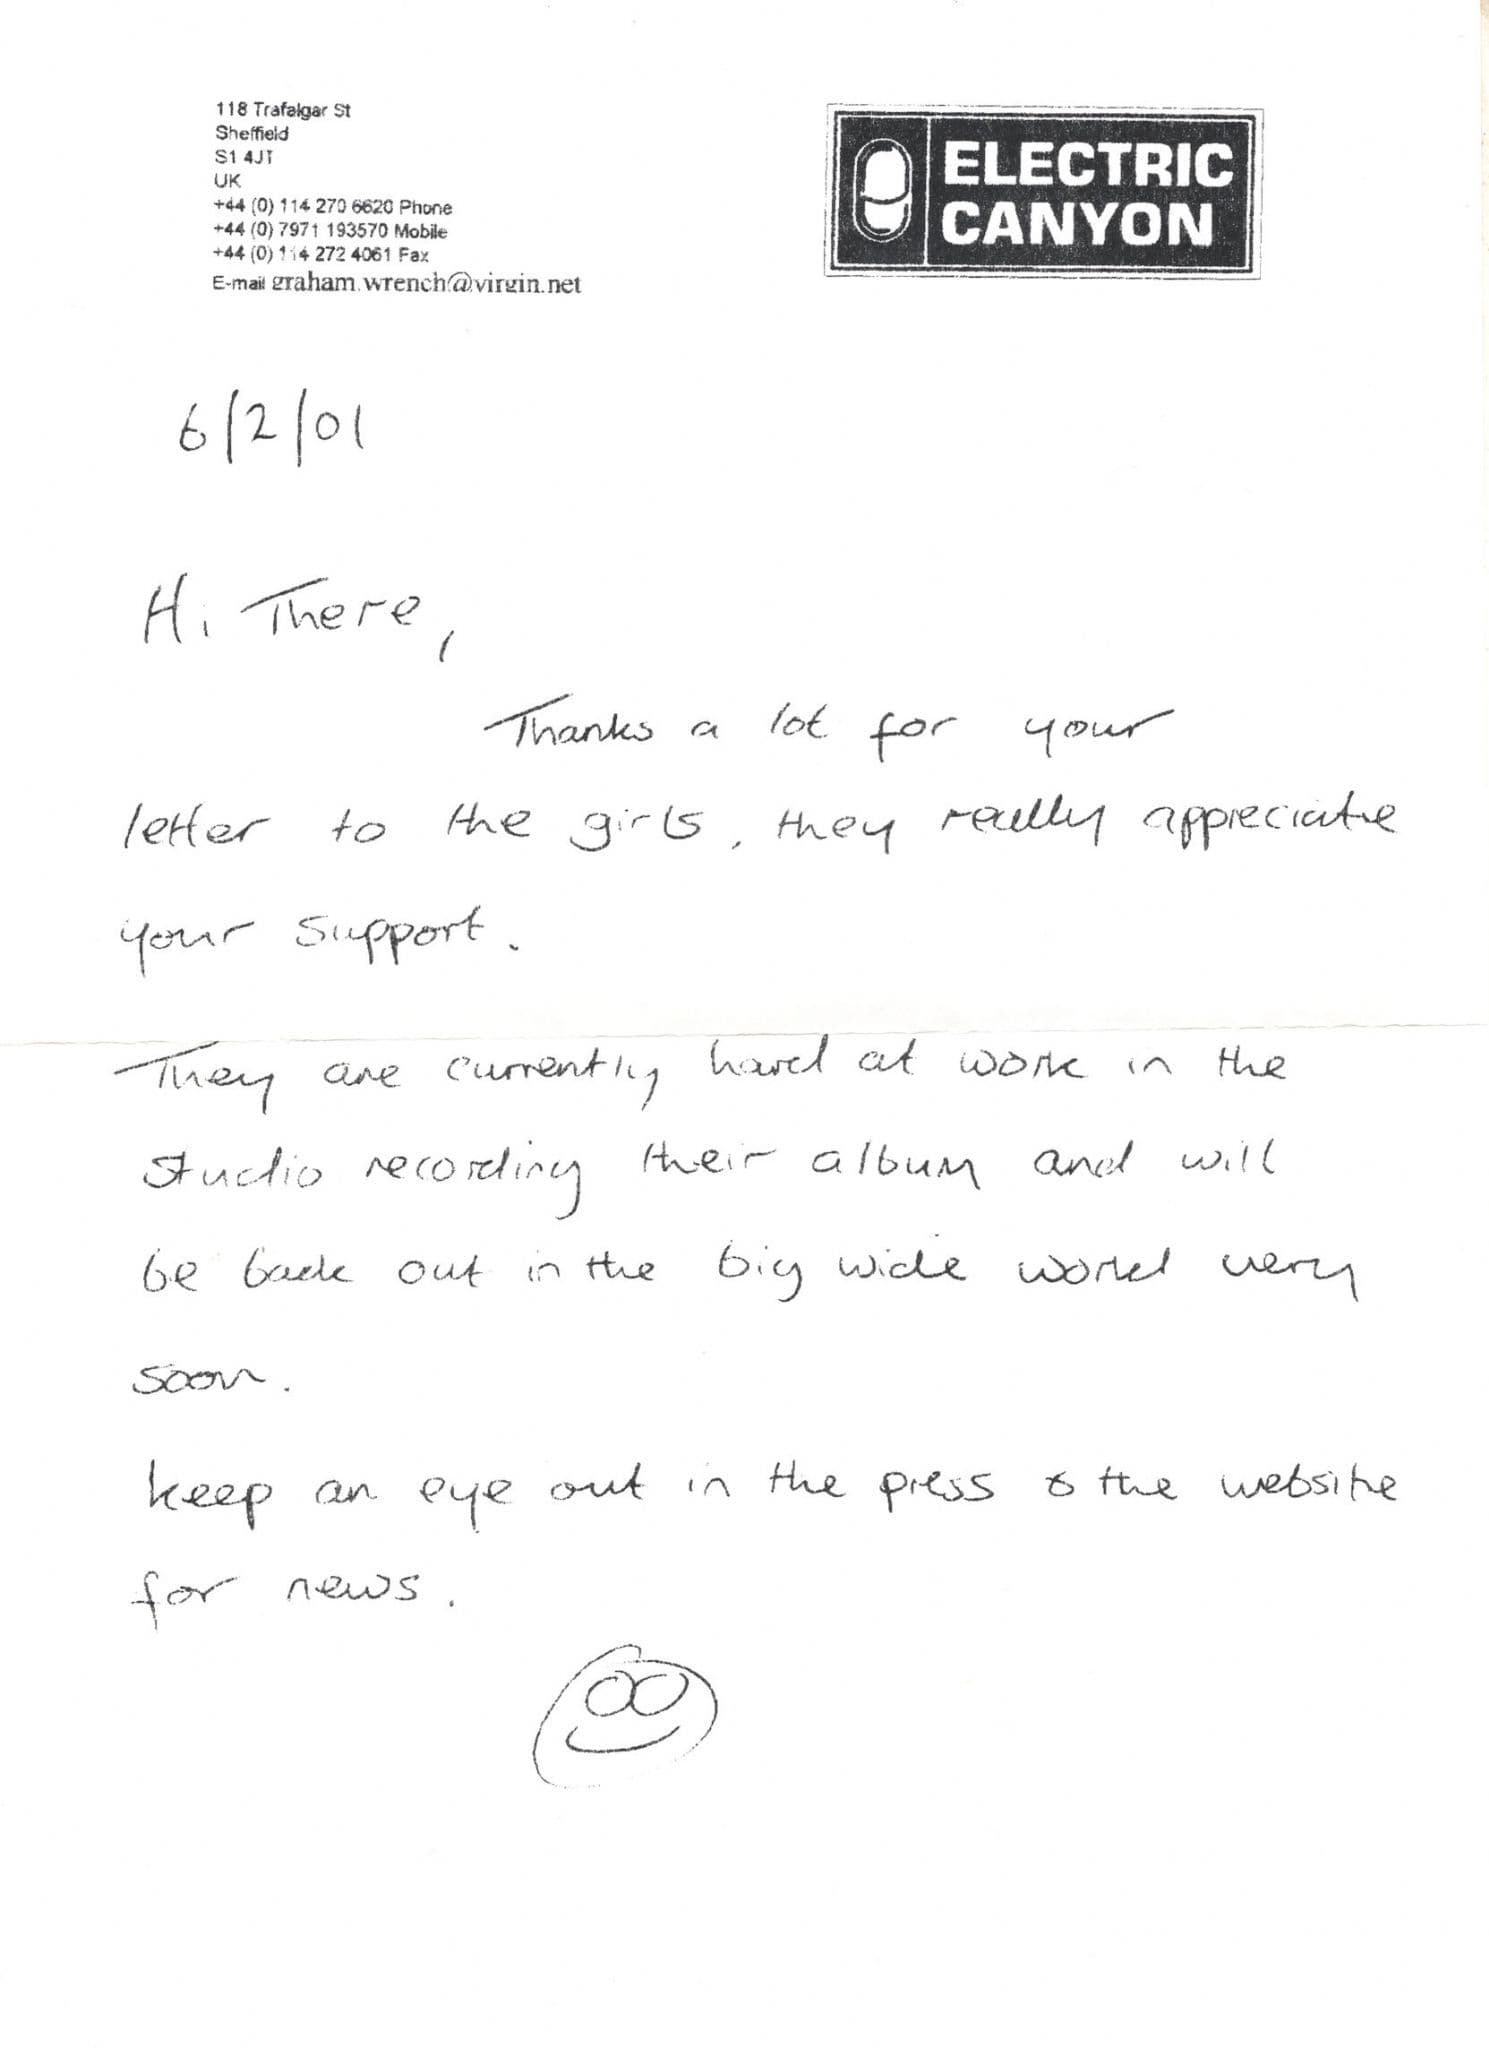 118 Trafalgar St
Sheffield
S1 4JT
UK
+44 (0) 114 270 6620 Phone
+44 (0) 7971 193570 Mobile
+44 (0) 114 272 4061 Fax
E-mail graham.wrench@virgin.net
ELECTRIC
CANYON
6/2/01
Hi There,
Thanks a lot for your
letter to the girls, they really appreciate
your support.
They are currently hard at work in the
studio recording their album and will
be back out in the big wide world very
soon.
keep an eye out in the press & the website
for news.